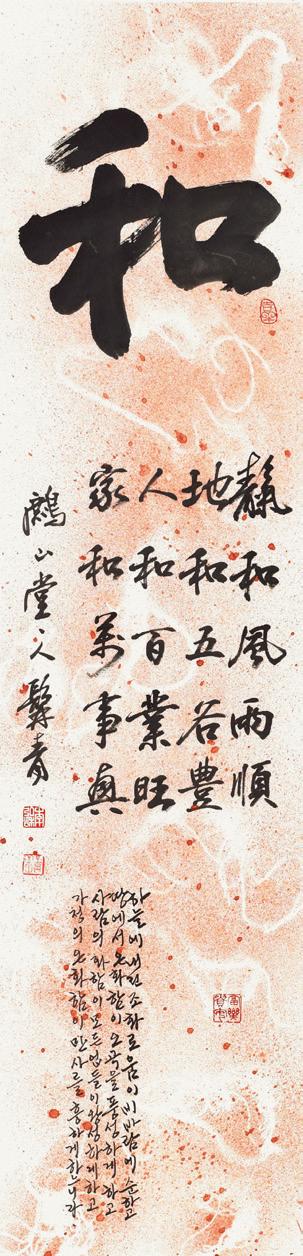 和
靝和風雨順
地和五谷豊
人和百業旺
家和萬事興
山堂人 青
하늘에서 조화로움이 비바람에 순하고
땅에서 화함이 오곡을 풍성하게 하고
사람의 화함이 모든 업들이 왕성하게 하고
가정의 만사를 흥하게